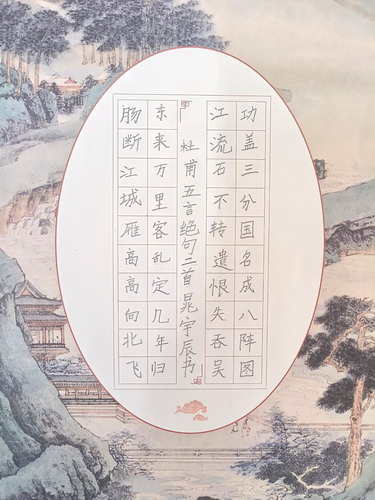 功盖三分国名成八阵图
江流石不转遗恨失吞吴
杜甫五言绝句二首晁宇辰书
东来万里客乱定几年归
肠断江城雁高高向北飞